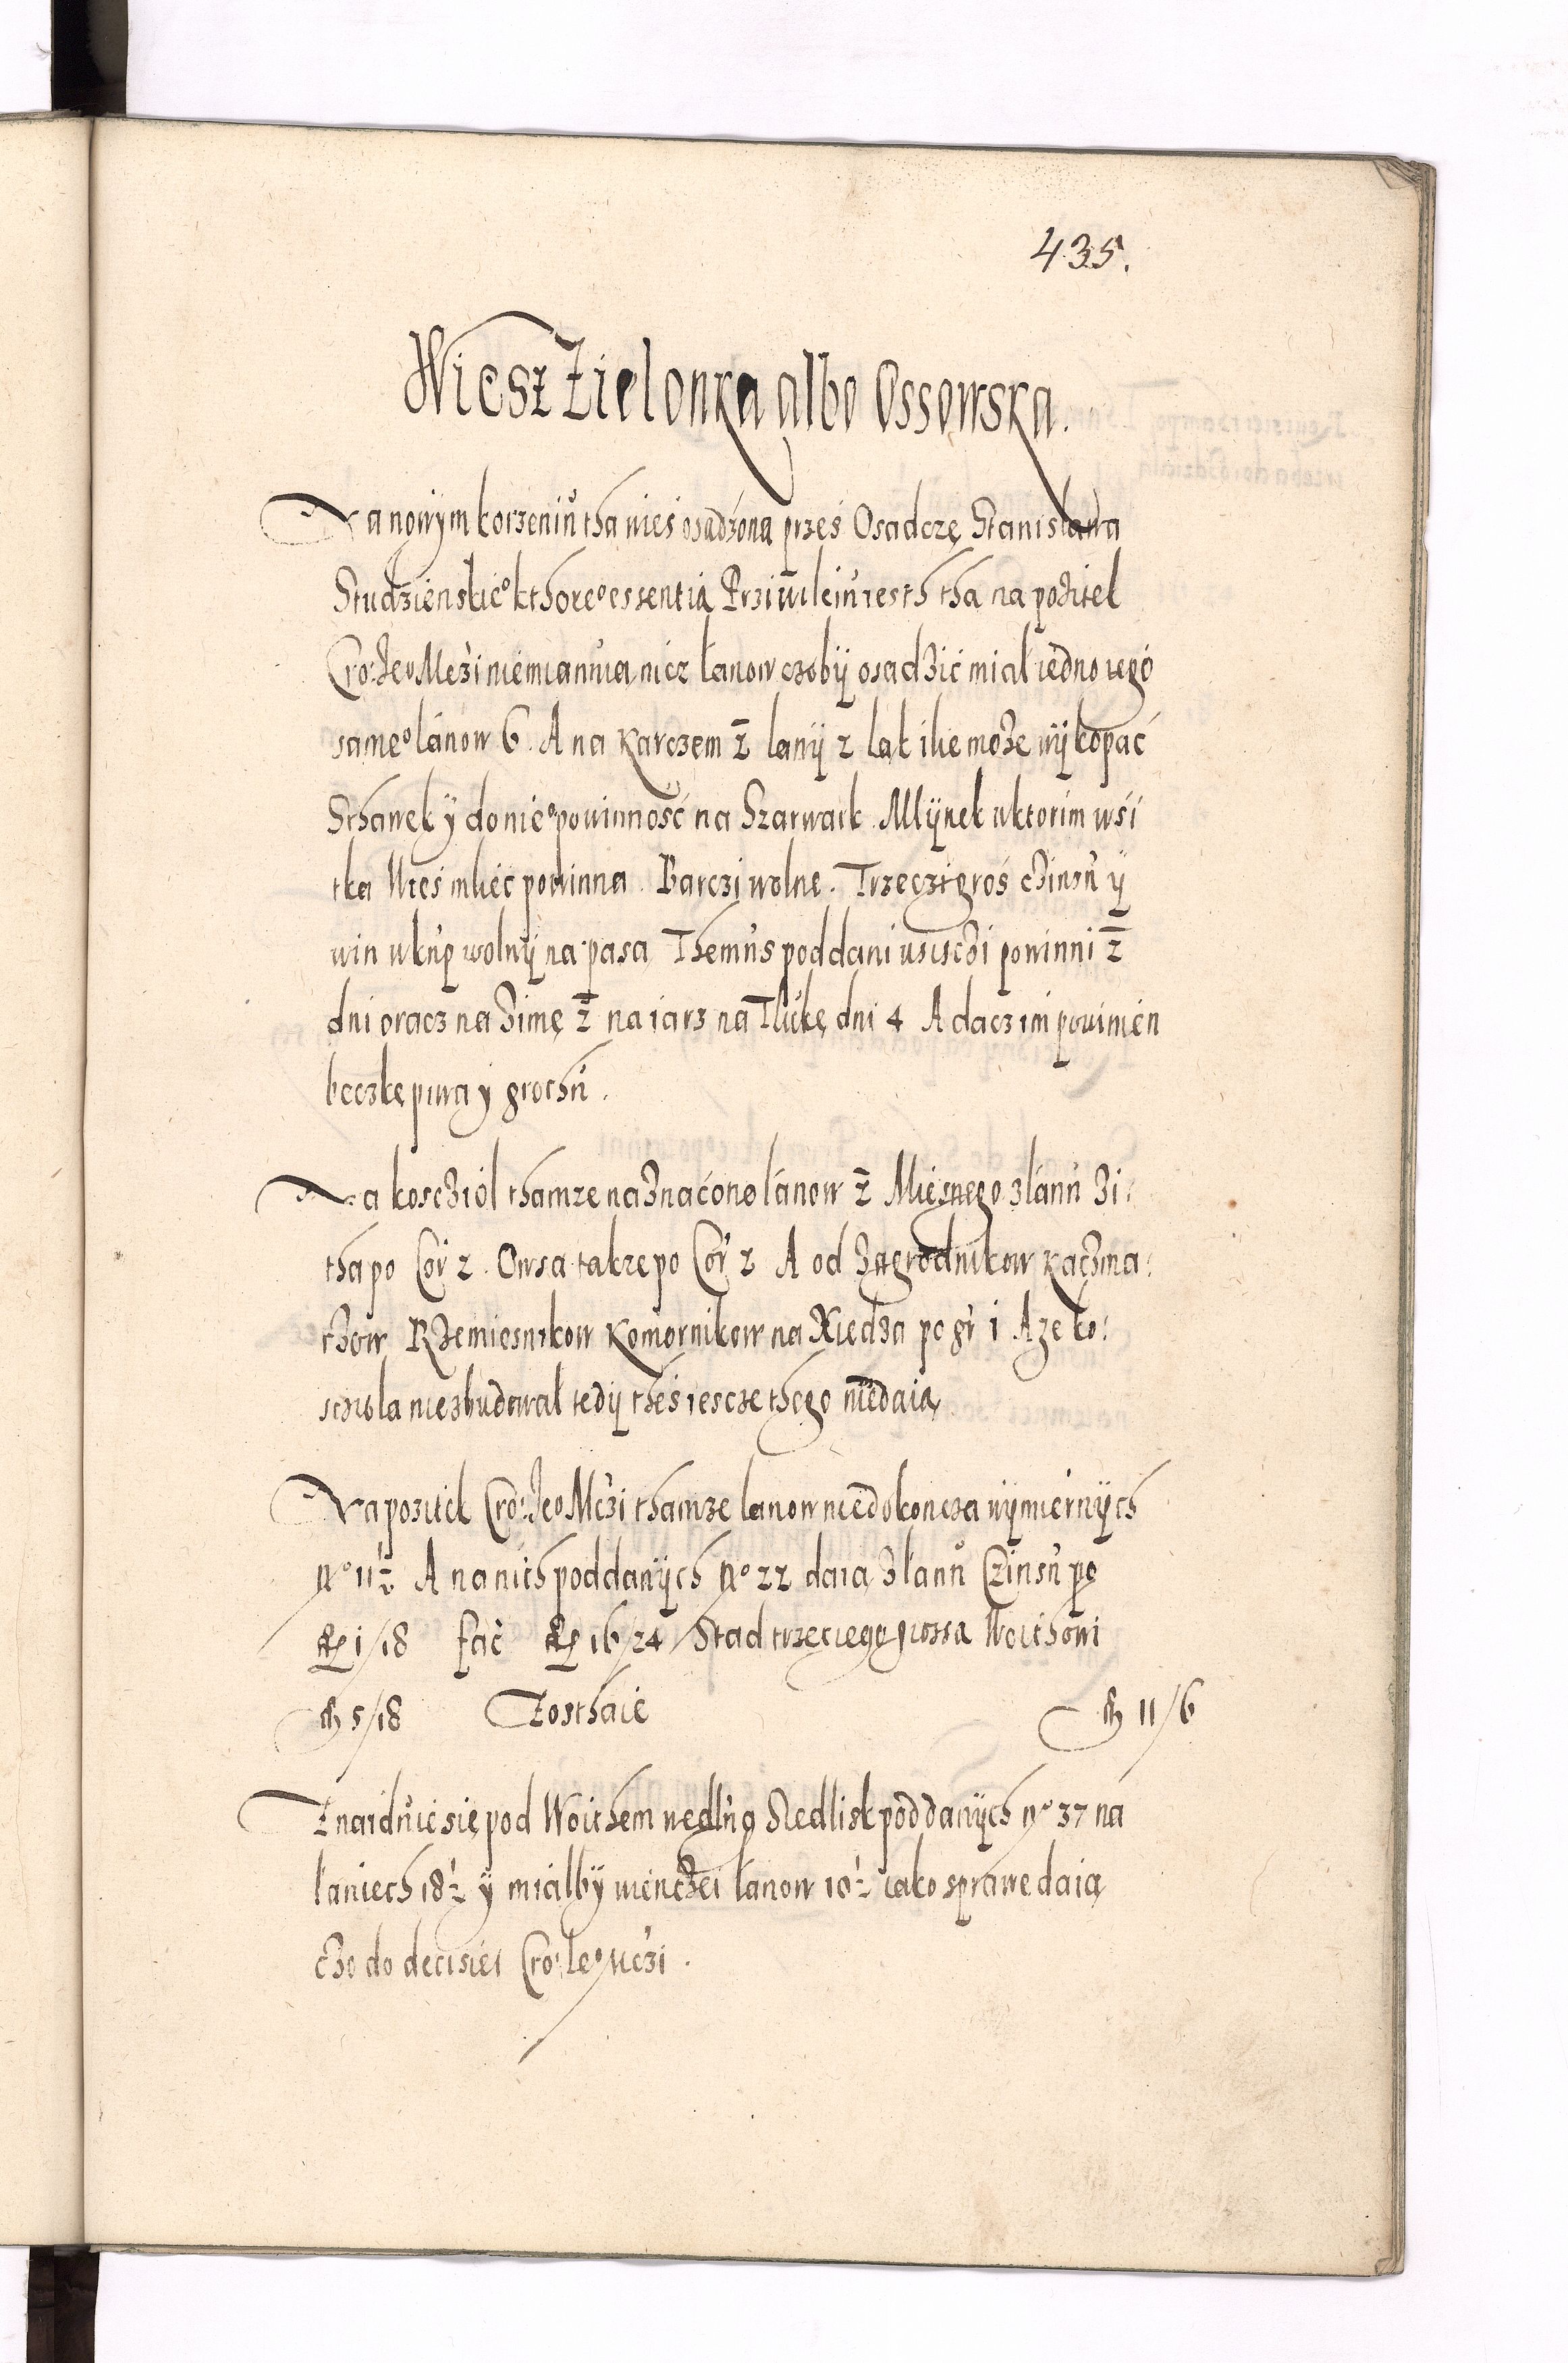 435.
Wiesz Zielonka albo Ossowska.
Na nowym korzeniu tha wieś osadzona przes Osadczę Stanisława
Studzienskie° kthore° essentia Przivileiu iesth tha na pożitek
Cro: Jeo Mczi niemianuia nicz łanow czobÿ osadzić miał iedno iegó
same° łánow 6. A na Karczem 2 łanÿ 2 łąk ilie może wÿkopać
Sthawek ÿ do nie° powinność na Szarwark. Młÿnek w ktorim wśi
tka Wieś mlieć powinna. Barczi wolne. Trzeczi groś cżinsu ÿ
win wkup wolnÿ na pasą Themus poddani wsisczi powinni 2
dni oracz na zimę 2 na iarz na Tlukę dni 4 A dacz im powinien
beczkę piwa y grochu.
Na koscziół thamze naznaćono łánow 2 Miesnego z łanu zi:
tha po Cor 2. Owsa takze po Cor 2 A od zagrodnikow Kaczma:
czow Rzemiesnikow Komornikow na Xiedza po gr 1 A ze ko:
scziola niezbudował tedÿ theś iescze thego niedaią
Na pozitek Cro: Jeo Mczi thamze łanow niedokoncza wÿmiernÿch
N° 11½ A na nich poddanÿch N° 22 daią z łanu Czinsu po
fl 1/18 fac fl 16/24 Stad trzeciego grossa Woithowi
fl 5/18 Zosthaie fl 11/6
Znaiduie się pod Woithem wedlug Siedlisk poddanÿch N° 37 na
łaniech 18½ ÿ miałbÿ wienczei łanow 10½ iako sprawe daią
czo do decisiei Cro: Ie° Mczi.